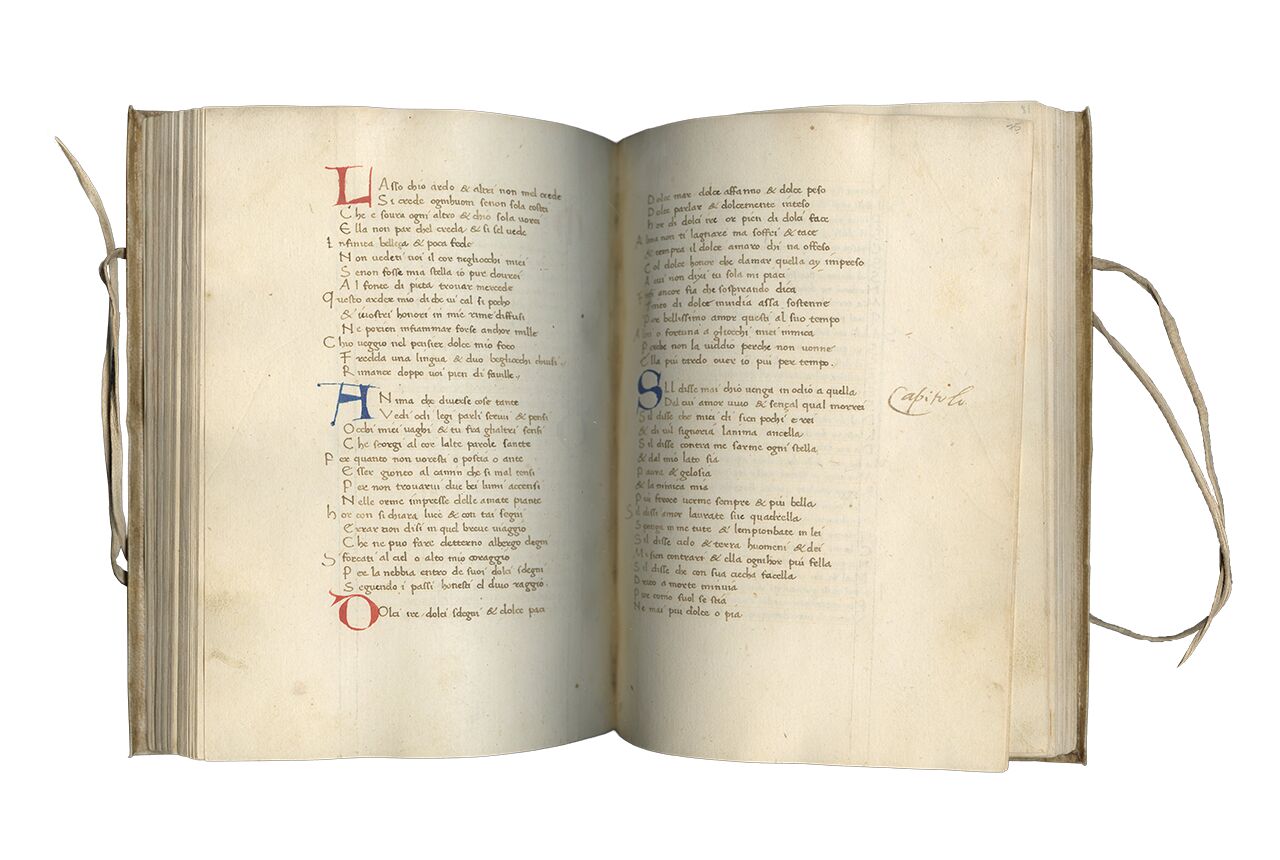 LAsso chio ardo & altri non mel crede
Si crede ognhuom senon sola costei
Che e soura ogni altro & chio sola vorei
Ella non par chel creda & si sel uede
Infinita belleça & poca fede
Non uedeti uoi il cor negliocchi mei
Senon fosse mia stella io pur dourei
Al fonte di pieta trouar mercede
Questo arder mio di che ui cal si pocho
& iuostri honori in mie rime diffusi
Ne porien infiammar forse anchor mille
Chio ueggio nel pensier dolce mio foco
Fredda una lingua & duo begliocchi chiusi
Rimaner doppo uoi pien di fauille
ANima che diuerse cose tante
Vedi odi legi parli scriui & pensi
Occhi miei uaghi & tu fra ghaltri sensi
Che scorgi al cor lalte parole sancte
Per quanto non uoresti o postia o ante
Esser gionto al camin che si mal tensi
Per non trouarui due bei lumi accensi
Nelle orme impresse delle amate piante
hor con si chiara luce & con tai segni
Errar non disi in quel breue uiaggio
Che ne puo fare detterno albergo degni
Sforcati al ciel o alto mio coraggio
Per la nebbia entro de suoi dolci sdegni
Seguendo i passi honesti el diuo raggio
DOlci ire dolci sdegni & dolce paci
Dolce mar dolce affanno & dolce peso
Dolce parlar & dolcemente inteso
hor di dolci ire or pien di dolci face
Alma non ti lagnare ma soffri & tace
& tempra il dolce amaro chi na offeso
Col dolce honor che damar quella ay impreso
A cui non dixi tu sola mi piaci
ancor fia che sospirando dica
di dolce inuidia assa sostenne
bellissimo amor questi al suo tempo
o fortuna a gliocchi miei inimica
Perche non la uiddio perche non uenne
Ella piu tardo ouer io piu per tempo
SIl disse mai chio uenga in odio a quella
Del cui amor uiuo & sençal qual morrei
Sil disse che miei di sien pochi e rei
& di uil signoria lanima ancella
Sil disse contra me sarme ogni stella
& dal mio lato sia
Paura & gelosia
& la nimica mia
Piu feroce uerme sempre & piu bella
Sil dissi amor laurate sue quadrella
Spenga in me tute & lempionbate in lei
Sil disse cielo & terra huomeni & dei
Mi sien contrari & ella ognihor piu fella
Sil disse che con sua ciecha facella
Drito a morte minuia
Pure como suol se stia
Ne mai piu dolce o pia
Capitoli